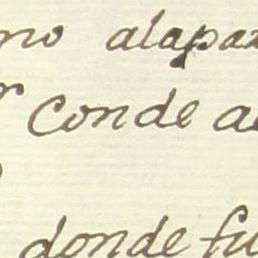 no alapaz
r Conde a
donde fu